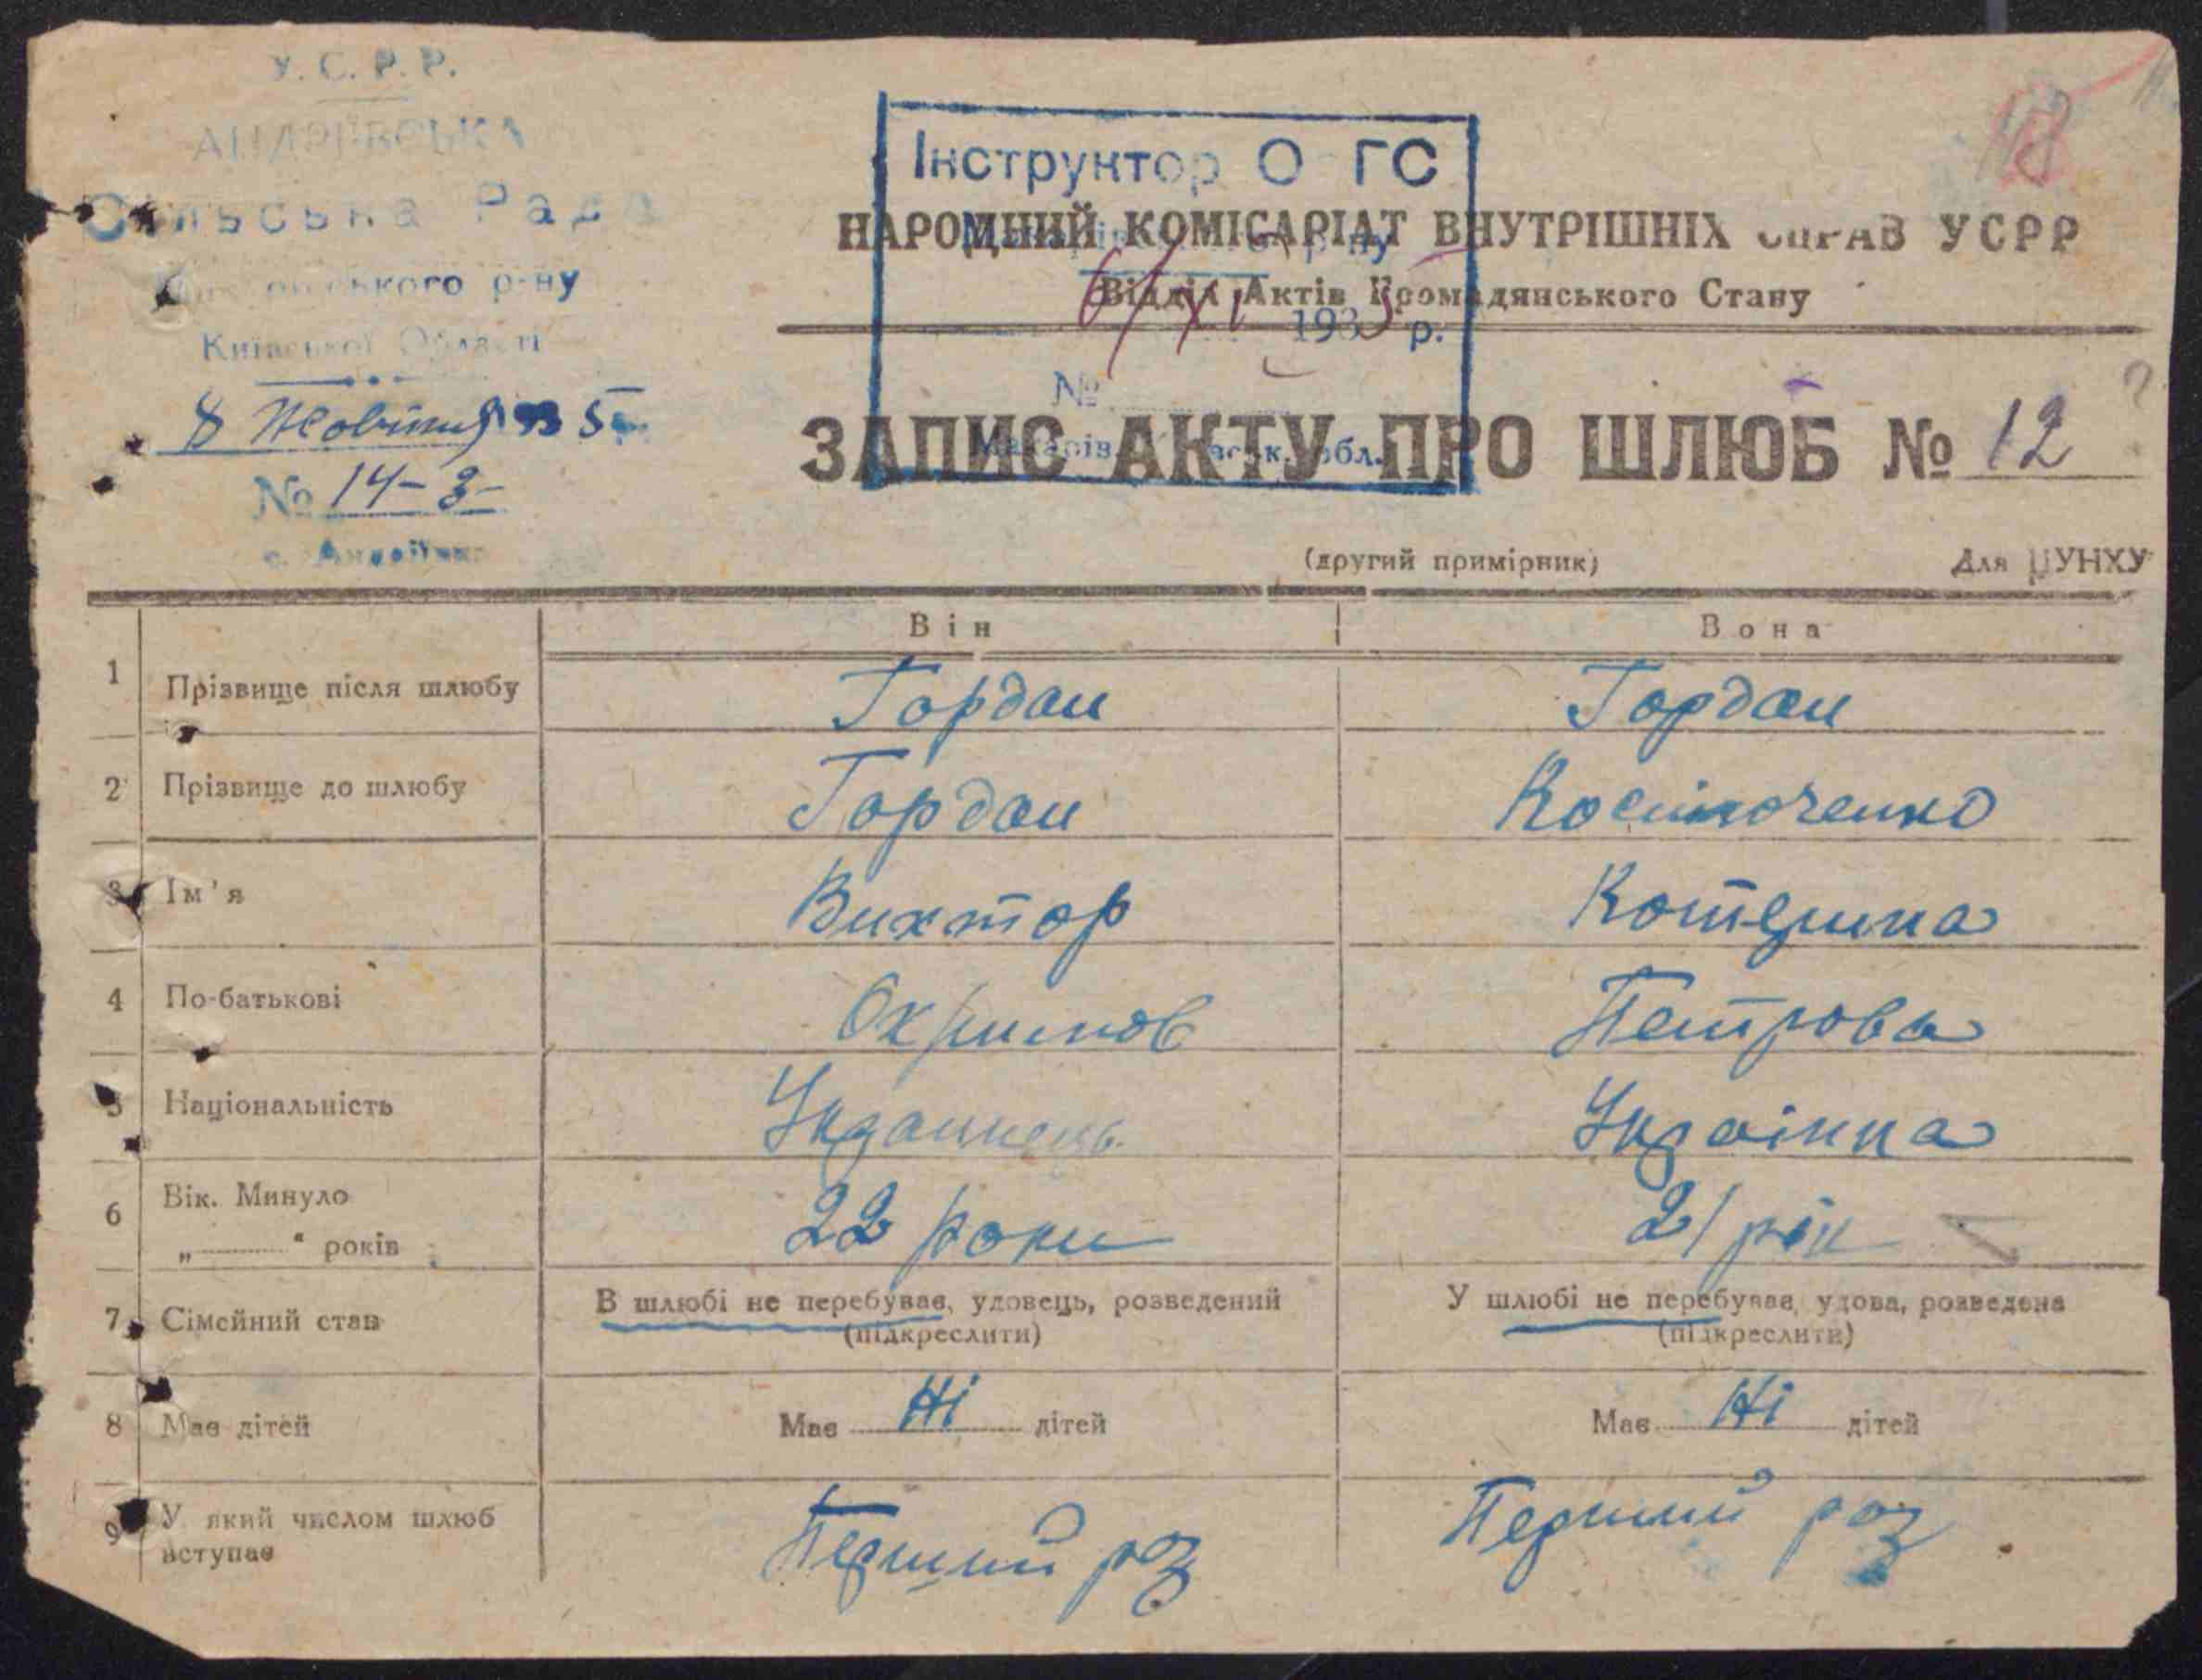 У. С. Р. Р.
АНДРІЇВСЬКА
Сільська Рада
р-ну
Київської Області
8 Жовтня 1935
№ 14-3-
с. Андріївка
Інструктор О ГС
р-ну
6/XI 1935 р.
№
Макарів Київськ. обл.
18
НАРОДНИЙ КОМІСАРІАТ ВНУТРІШНІХ СПРАВ УСРР
Відділ Актів Громадянського Стану
ЗАПИС АКТУ ПРО ШЛЮБ № 12
(другий примірник) Для ЦУНХУ
Він Вона
1 Прізвище після шлюбу Гордан Гордан
2 Прізвище до шлюбу Гордан Костюченко
3 Ім'я Виктор Котерина
4 По-батькові Охримов Петрова
5 Національність Украинець Українка
6 Вік. Минуло
„ “ років 22 роки 21 рік
7 Сімейний стан В шлюбі не перебуває, удовець, розведений У шлюбі не перебуває, удова, розведена
(підкреслити) (підкреслити)
8 Має дітей Має Ні дітей Має Ні дітей
9 У який числом шлюб
вступає Перший роз Перший роз